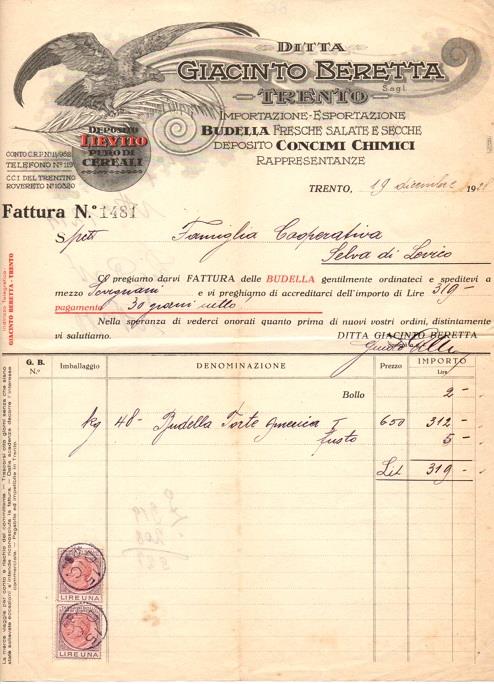 DITTA
GIACINTO BERETTA
S.a g.l.
TRENTO
IMPORTAZIONE-ESPORTAZIONE
BUDELLA FRESCHE SALATE E SECCHE
DEPOSITO CONCIMI CHIMICI
RAPPRESENTANZE
DEPOSITO
LIEVITO
PURO DI
CEREALI
CONTO C.R.P. N° 11/952
TELEFONO N° 119
C.C.I. DEL TRENTINO
ROVERETO N° 10320
TRENTO, 19 dicembre 192
Fattura N.° 1481
Spett Famiglia Cooperativa
Selva di Levico
Indirizzo Telegrafico:
GIACINTO BERETTA - TRENTO
Ci pregiamo darvi FATTURA delle BUDELLA gentilmente ordinateci e speditevi a
mezzo e vi preghiamo di accreditarci dell'importo di Lire 319-
pagamento 30 giorni netto
Nella speranza di vederci onorati quanto prima di nuovi vostri ordini, distintamente
vi salutiamo. DITTA GIACINTO BERETTA
G. B. N.° Imballaggio DENOMINAZIONE Prezzo IMPORTO Lire
Bollo 2-
Kg 48- Budella Torte America I 650 312-
fusto 5-
Lit 319-
LIRE UNA
LIRE UNA
La merce viaggia per conto e rischio del committente. — Trascorsi otto giorni senza che siano
state sollevate eccezioni s'intende riconosciuta la fattura. — Dalla scadenza decorre l'interesse
commerciale. — Pagabile ed impetibile in Trento.